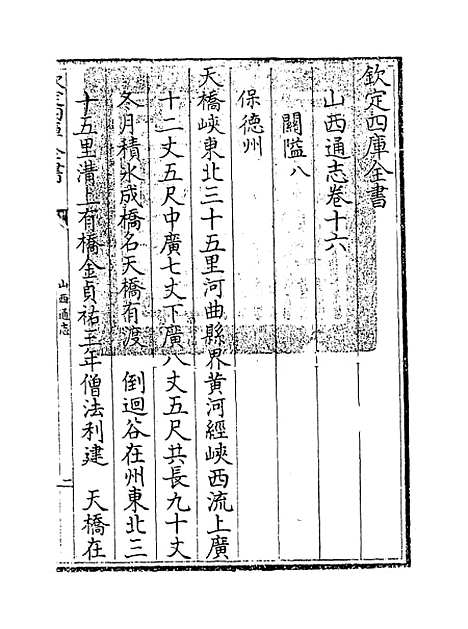 欽定四庫全書
山西通志卷十六
關隘八
保德州
天橋峽東北三十五里河曲縣界黄河經峽西流上廣
十二丈五尺中廣七丈下廣八丈五尺共長九十丈
冬月積氷成橋名天橋有渡　倒迴谷在州東北三
十五里溝上有橋金貞祐三年僧法利建　天橋在
欽定四庫全書
山西通志